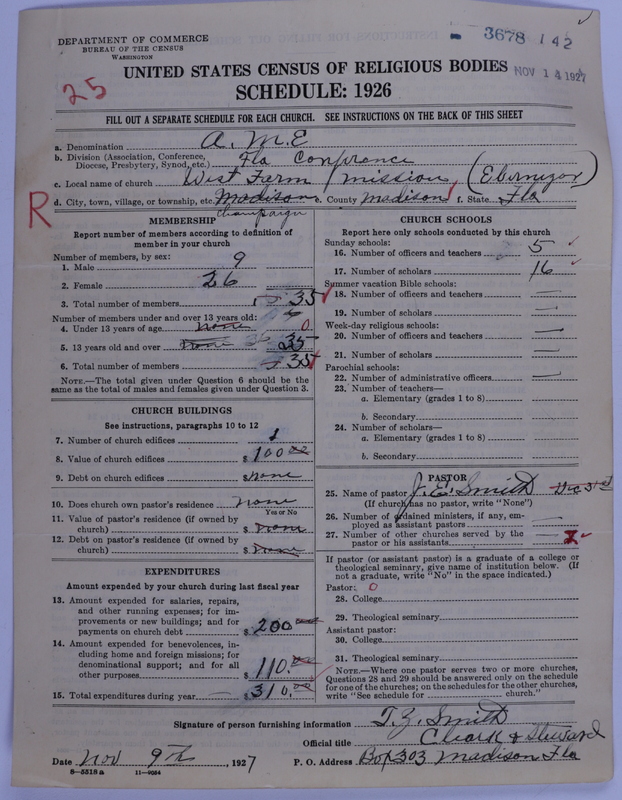 DEPARTMENT OF COMMERCE
BUREAU OF THE CENSUS
WASHINGTON
3678 142
NOV 14 1927
25
UNITED STATES CENSUS OF RELIGIOUS BODIES
SCHEDULE: 1926
FILL OUT A SEPARATE SCHEDULE FOR EACH CHURCH. SEE INSTRUCTIONS ON THE BACK OF THIS SHEET
a. Denomination A. M. E
b. Division (Association, Conference, Diocese, Presbytery, Synod, etc.) Fla Confrance
c. Local name of church West Farm / mission (Ebernezor)
R
d. City, town, village, or township, etc. Madison e. County Madison f. State Fla
MEMBERSHIP
Report number of members according to definition of
member in your church
Number of members, by sex:
1. Male 9
2. Female 26
3. Total number of members 35
Number of members under and over 13 years old:
4. Under 13 years of age none 0
5. 13 years old and over none 35
6. Total number of members 35
NOTE.—The total given under Question 6 should be
same as the total of males and females given under Question 3.
CHURCH BUILDINGS
See instructions, paragraphs 10 to 12
7. Number of church edifices 1
8. Value of church edifices $ 100 00
9. Debt on church edifices $ none
10. Does church own pastor's residence? none
Yes or No
11. Value of pastor's residence (if owned by
church) $ none
12. Debt on pastor's residence (if owned by
church) $ none
EXPENDITURES
Amount expended by your church during last fiscal year
13. Amount expended for salaries, repairs,
and other running expenses; for im-
provements or new buildings; and for
payments on church debt $ 200 00
14. Amount expended for benevolences, in-
cluding home and foreign missions; for
denominational support; and for all
other purposes $ 110.00
15. Total expenditures during year 310.00
CHURCH SCHOOLS
Report here only schools conducted by this church
Sunday schools:
16. Number of officers and teachers 5
17. Number of scholars 16
Summer vacation Bible schools:
18. Number of officers and teachers —
19. Number of scholars —
Week-day religious schools:
20. Number of officers and teachers —
21. Number of scholars —
Parochial schools:
22. Number of administrative officers —
23. Number of teachers—
a. Elementary (grades 1 to 8)
b. Secondary
24. Number of scholars—
a. Elementary (grades 1 to 8)
b. Secondary
PASTOR
25. Name of pastor J. E. Smith Dec 31st
(If church has no pastor, write "None")
26. Number of ordained ministers, if any, em-
ployed as assistant pastors —
27. Number of other churches served by the
pastor or his assistants —
If pastor (or assistant pastor) is a graduate of a college or
theological seminary, give name of institution below. (If
not a graduate, write "No" in the space indicated.)
Pastor: 0
28. College
29. Theological seminary
Assistant pastor:
30. College
31. Theological seminary
NOTE.—Where one pastor serves two or more churches,
Questions 28 and 29 should be answered only on the schedule
for one of the churches; on the schedules for the other churches,
write "See schedule for church."
Signature of person furnishing information T. Z. Smith
Official title Cleark & Steward
Date Nov 9th, 1927 P. O. Address Box 303 Madison Fla
8—5518 a 11—9064